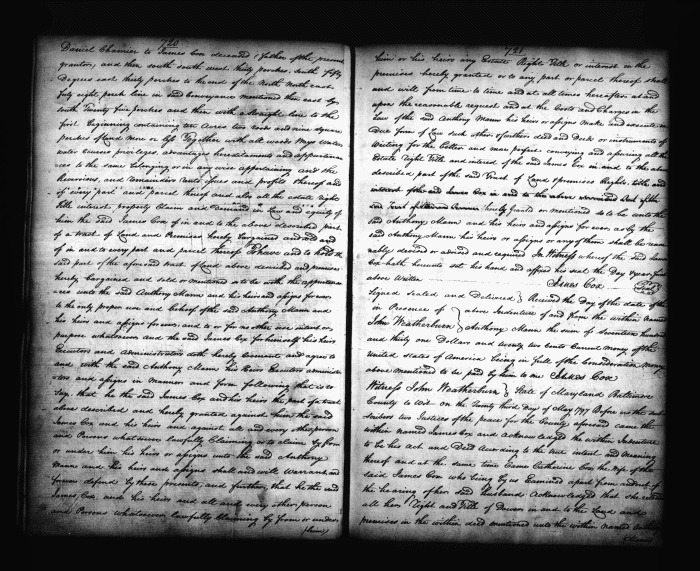 720
Daniel Chamier to James Cox deceased father of the present
grantor, and then south south west thirty perches, South fifty
Degrees east thirty perches to the end of the North North east
forty eight perch line in said Conveyance mentioned then east by
South Twenty five perches and then with a straight line to the
first beginning containing ten Acres two roods and nine square
perches of land more or less Together with all woods Ways waters
water Courses priviledges advantages hereditaments and appurtenan
ces to the same belonging or in any wise appertaining and the
Reversions and Remainders rents issues and profits thereof and
of every part and parcel thereof and also all the estate Right
Title interest property Claim and Demand in Law and equity of
him the said James Cox of in and to the above described part
of a tract of Land and Premises hereby bargained and sold and
of in and to every part and parcel thereof To have and to hold the
said part of the aforesaid tract of Land above described and premises
hereby bargained and sold or mentioned so to be with the appurtenan
ces unto the said Anthony Mann and his heirs and assigns for ever
to the only proper use and behoof of the said Anthony Mann and
his heirs and assigns for ever and to or for no other use intent or
purpose whatsoever and the said James Cox for himself his heirs
Executors and administrators doth hereby Covenant and agree to
and with the said Anthony Mann his Heirs Executors administra
tors and assigns in Manner and form following that is to
Say that he the said James Cox and his heirs the part of a tract
above described and hereby granted against him the said
James Cox and his heirs and against all and every other person
and Persons whatsoever lawfully Claiming or to claim by from
or under him his heirs or assigns unto the said Anthony
Mann and his heirs and assigns shall and will Warrant and
forever defend by these presents, and further, that he the said
James Cox and his heirs and all and every other person
and Persons whatsoever lawfully Claiming by from or under
him
721
him or his heirs any Estate Right Title or interest in the
premises hereby granted or to any part or parcel thereof shall
and will from time to time and at all times hereafter at and
upon the reasonable request and at the Costs and Charges in the
Law of the said Anthony Mann his heirs or assigns make and execute in
Due form of Law such other or further deed and Deeds or instruments of
Writing for the better and more perfect conveying and assuring all the
Estate Right Title and interest of the said James Cox in and to the above
described part of the said Tract of Land & premises Rights title and
interest of the said James Cox in and to the above
hereby granted or mentioned so to be unto the
said Anthony Mann and his heirs and assigns for ever, as by the
said Anthony Mann his heirs or assigns or any of them shall be reaso
nably devised or advised and required In Witness whereof the said James
Cox hath hereunto set his hand and affixed his seal the Day & year first
above Written James Cox Seal
Signed sealed and Delivered } Received the Day of the date of the
in Presence of } above Indenture of and from the within named
John Weatherburn } Anthony Mann the sum of Seventeen hundred
and thirty one Dollars and twenty two Cents Current money of the
United States of America being in full of the Consideration money
above mentioned to be paid by him to me James Cox
Witness John Weatherburn } State of Maryland Baltimore
County to Wit on the Twenty third Day of May 1797 Before us the sub
scribers two Justices of the peace for the County aforesaid came the
within named James Cox and acknowledged the within Indenture
to be his Act and Deed According to the true intent and Meaning
thereof and at the same time Came Catherine Cox the Wife of the
said James Cox who being by us Examined apart from and out of
the hearing of her said husband Acknowledged that she
all her Right and Title of Dower in and to the Land and
premises in the within deed mentioned unto the within named Anthony
Mann